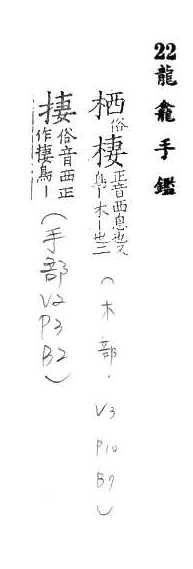 22龍龕手鑑
栖俗棲正音西息也又(木部.V3 P10 B9)
捿俗音西正作棲鳥—(手部V2 P3 B2)